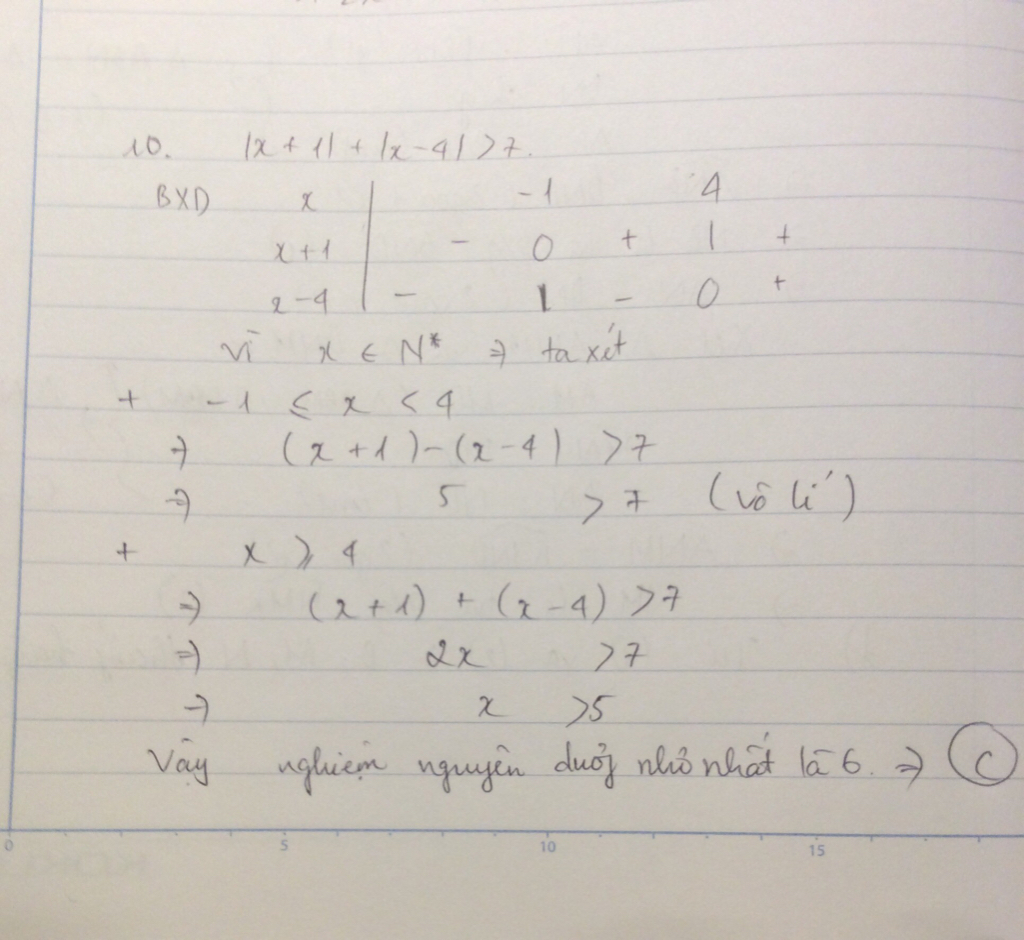 10. |x + 1| + |x - 4| > 7.
BXD x -1 4
x + 1 - 0 + | +
x - 4 - | - 0 +
Vì x ∈ N* ⇒ ta xét
+ -1 ≤ x < 4
⇒ (x + 1) - (x - 4) > 7
⇒ 5 > 7 (vô lí)
+ x ≥ 4
⇒ (x + 1) + (x - 4) > 7
⇒ 2x > 7
⇒ x > 5
Vậy nghiệm nguyên dương nhỏ nhất là 6. ⇒ C
0 5 10 15